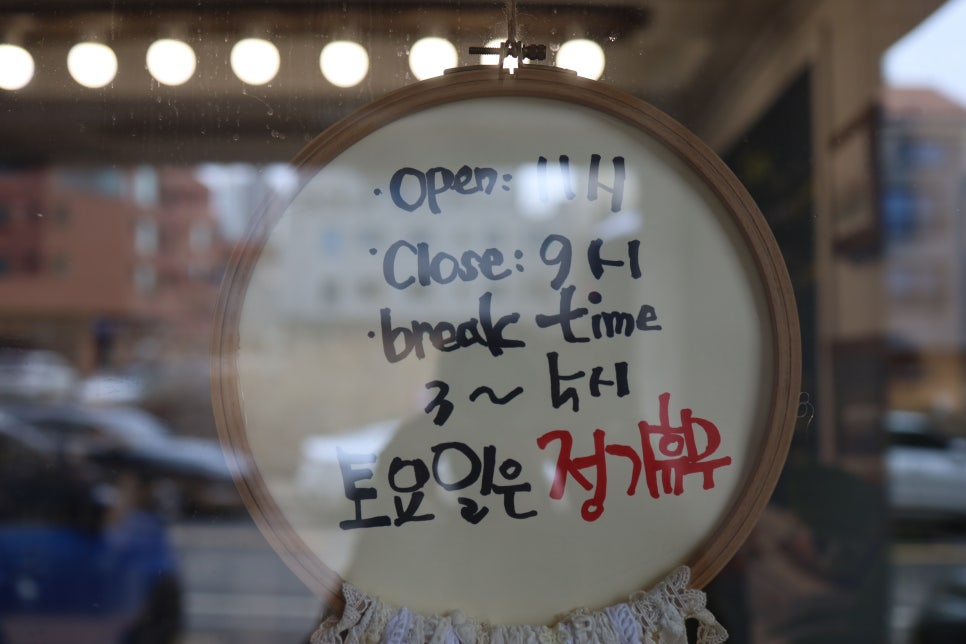 · Open: 11시
· Close: 9시
· break time
3 ~ 4시
토요일은 정기휴무